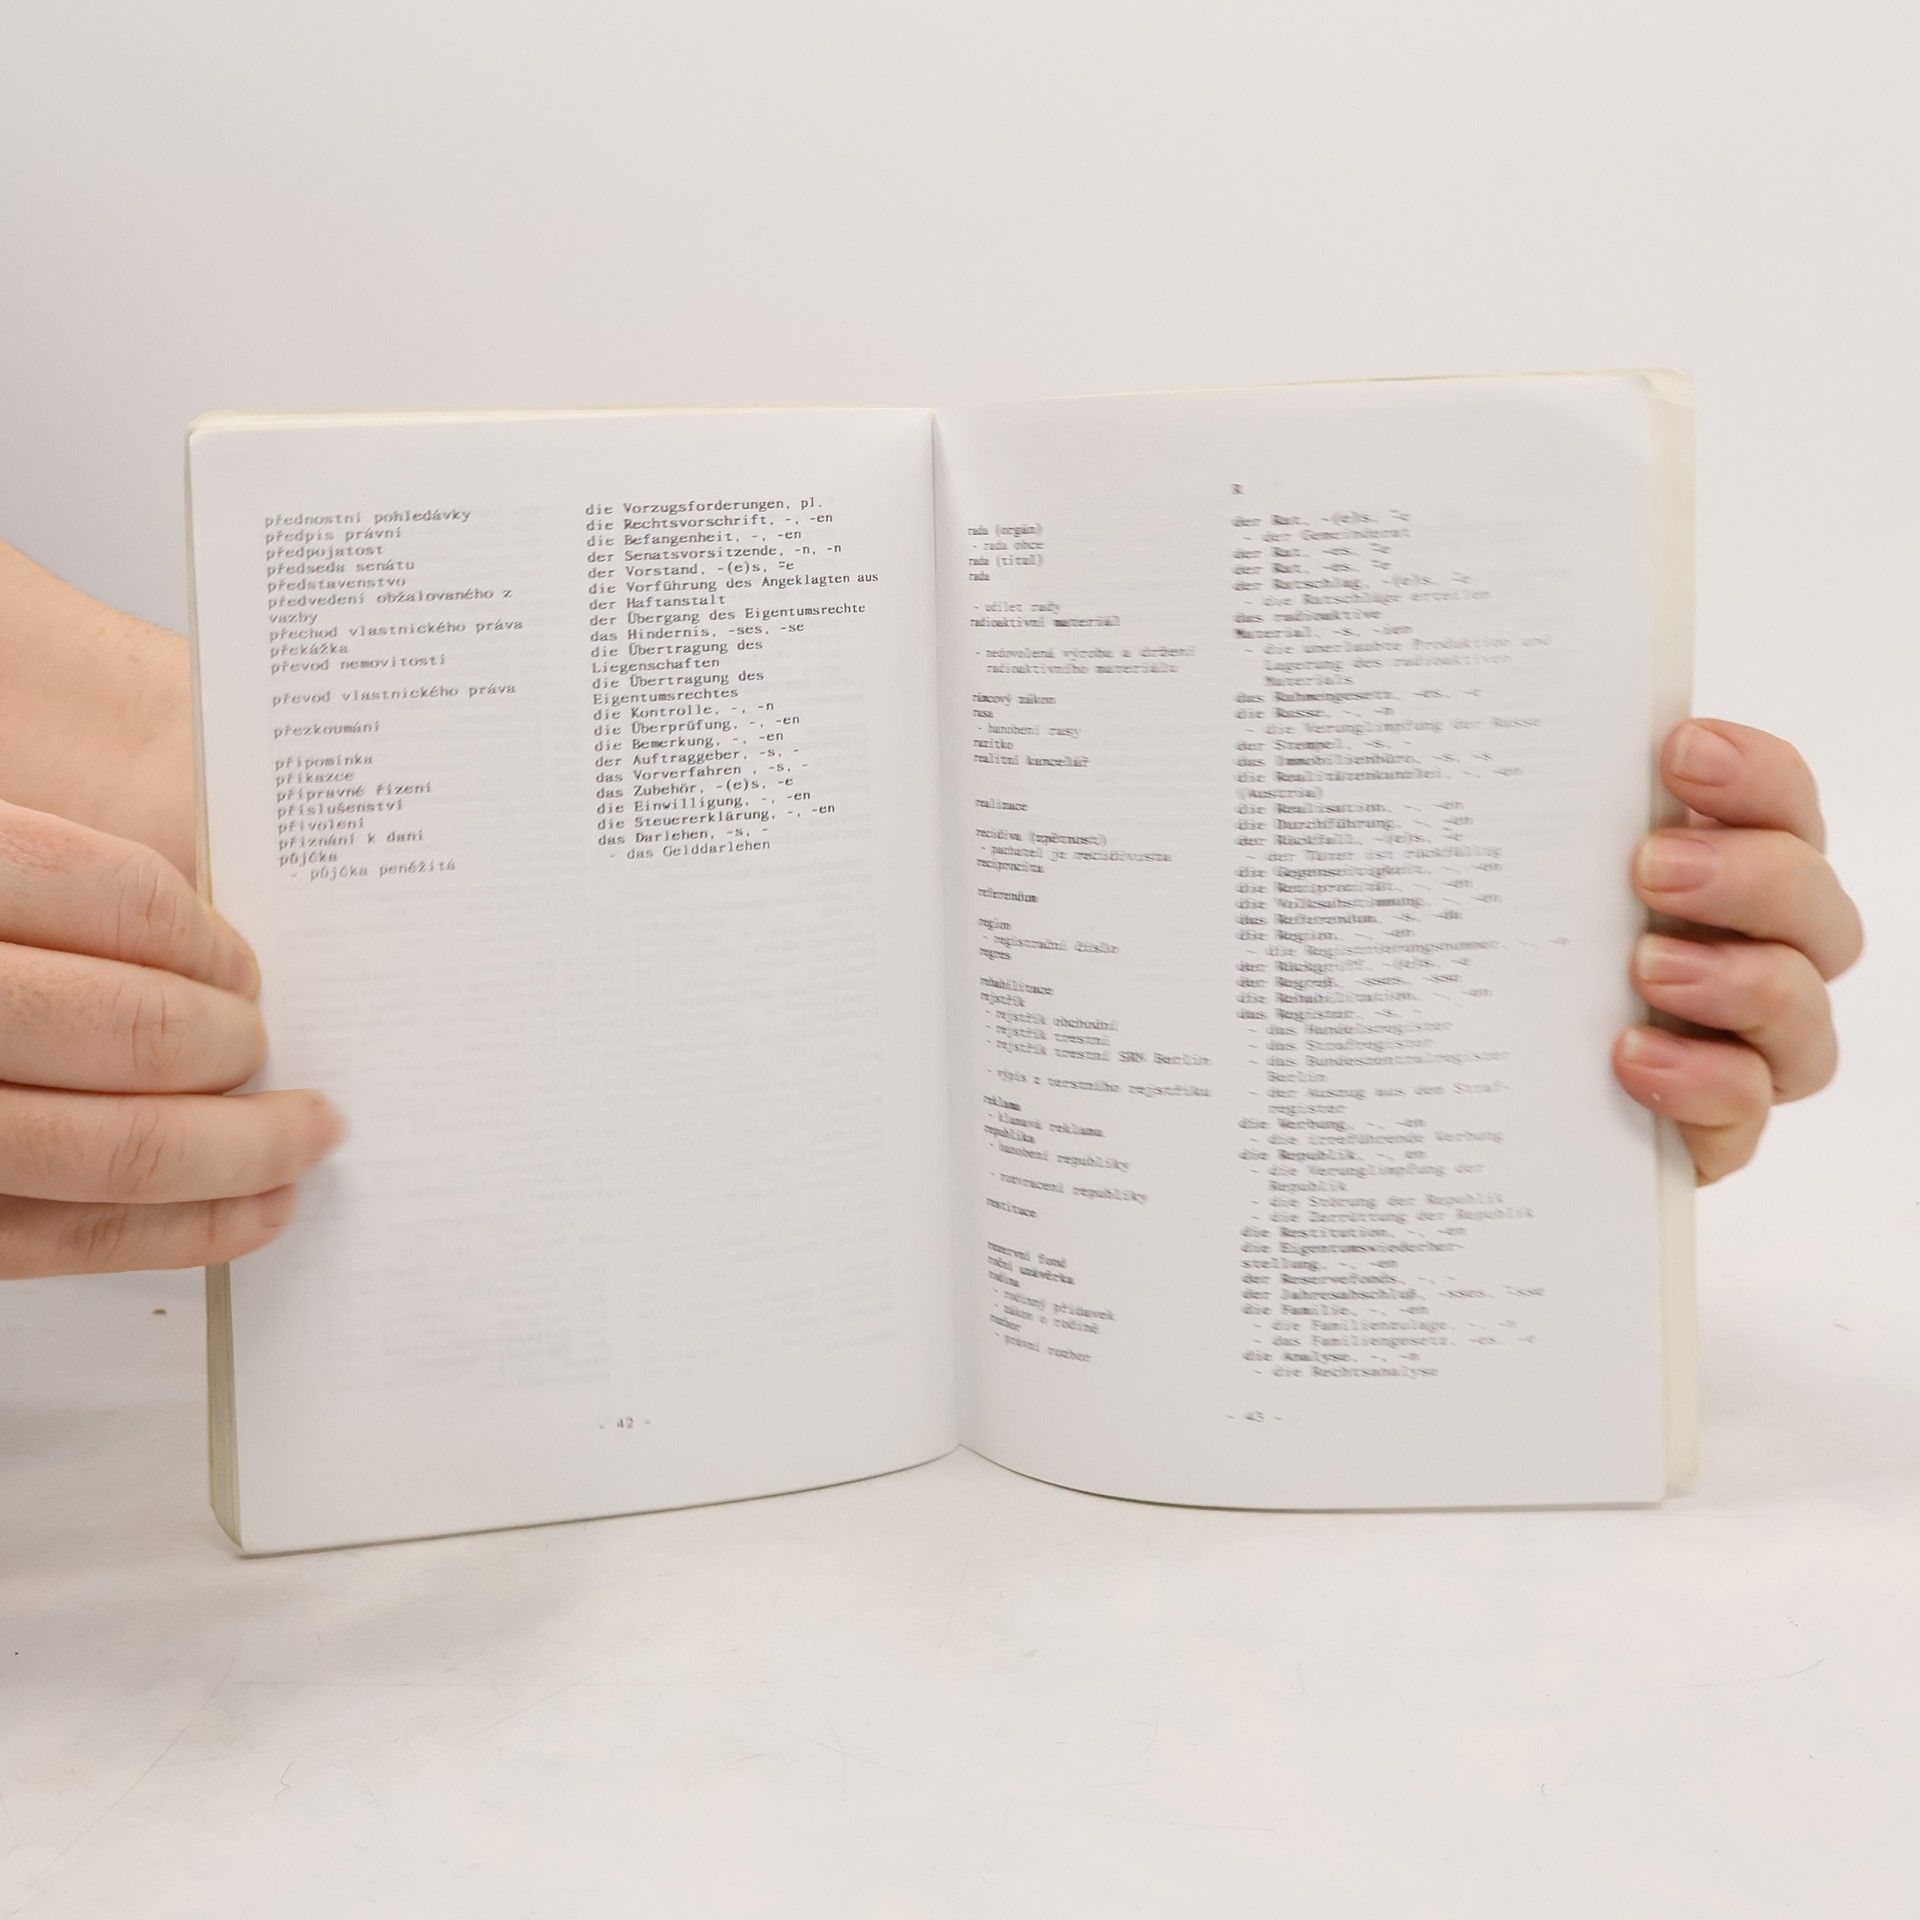 přednostní pohledávky die Vorzugsforderungen, pl.
předpis právní die Rechtsvorschrift, -, -en
předpojatost die Befangenheit, -, -en
předseda senátu der Senatsvorsitzende, -n, -n
představenstvo der Vorstand, -(e)s, ⸚e
předvedení obžalovaného z die Vorführung des Angeklagten aus
vazby der Haftanstalt
přechod vlastnického práva der Übergang des Eigentumsrechte
překážka das Hindernis, -ses, -se
převod nemovitostí die Übertragung des
Liegenschaften
převod vlastnického práva die Übertragung des
Eigentumsrechtes
přezkoumání die Kontrolle, -, -n
die Überprüfung, -, -en
připomínka die Bemerkung, -, -en
příkazce der Auftraggeber, -s, -
přípravné řízení das Vorverfahren , -s, -
příslušenství das Zubehör, -(e)s, -e
přivolení die Einwilligung, -, -en
přiznání k dani die Steuererklärung, -, -en
půjčka das Darlehen, -s, -
- půjčka peněžitá - das Gelddarlehen
- 42 -
R
rada (orgán) der Rat, -(e)s, ⸚e
- rada obce - der Gemeinderat
rada (titul) der Rat, -es, ⸚e
rada der Rat, -es, ⸚e
der Ratschlag, -(e)s, ⸚e
- udílet rady - die Ratschläge erteilen
radioaktivní materiál das radioaktive
Material, -s, -ien
- nedovolená výroba a držení - die unerlaubte Produktion und
radioaktivního materiálu Lagerung des radioaktiven
Materials
rámcový zákon das Rahmengesetz, -es, -e
rasa die Rasse, -, -n
- hanobení rasy - die Verunglimpfung der Rasse
razítko der Stempel, -s, -
realitní kancelář das Immobilienbüro, -s, -s
die Realitätenkanzlei, -, -en
(Austria)
realizace die Realisation, -, -en
die Durchführung, -, -en
recidiva (zpětnost) der Rückfall, -(e)s, ⸚e
- pachatel je recidivista - der Täter ist rückfällig
reciprocita die Gegenseitigkeit, -, -en
die Reziprozität, -, -en
referendum die Volksabstimmung, -, -en
das Referendum, -s, -da
region die Region, -, -en
- registrační číslo - die Registrierungsnummer, -, -n
regres der Rückgriff, -(e)s, -e
der Regreß, -sses, -sse
rehabilitace die Rehabilitation, -, -en
rejstřík das Register, -s, -
- rejstřík obchodní - das Handelsregister
- rejstřík trestní - das Strafregister
- rejstřík trestní SRN Berlin - das Bundeszentralregister
Berlin
- výpis z terstního rejstříku - der Auszug aus dem Straf-
register
reklama die Werbung, -, -en
- klamavá reklama - die irreführende Werbung
republika die Republik, -, en
- hanobení republiky - die Verunglimpfung der
Republik
- rozvracení republiky - die Störung der Republik
- die Zerrüttung der Republik
restituce die Restitution, -, -en
die Eigentumswiederher-
stellung, -, -en
rezervní fond der Reservefonds, -, -
roční uzávěrka der Jahresabschluß, -sses, ⸚sse
rodina die Familie, -, -en
- rodinný přídavek - die Familienzulage, -, -n
- zákon o rodině - das Familiengesetz, -es, -e
rozbor die Analyse, -, -n
- právní rozbor - die Rechtsanalyse
- 43 -